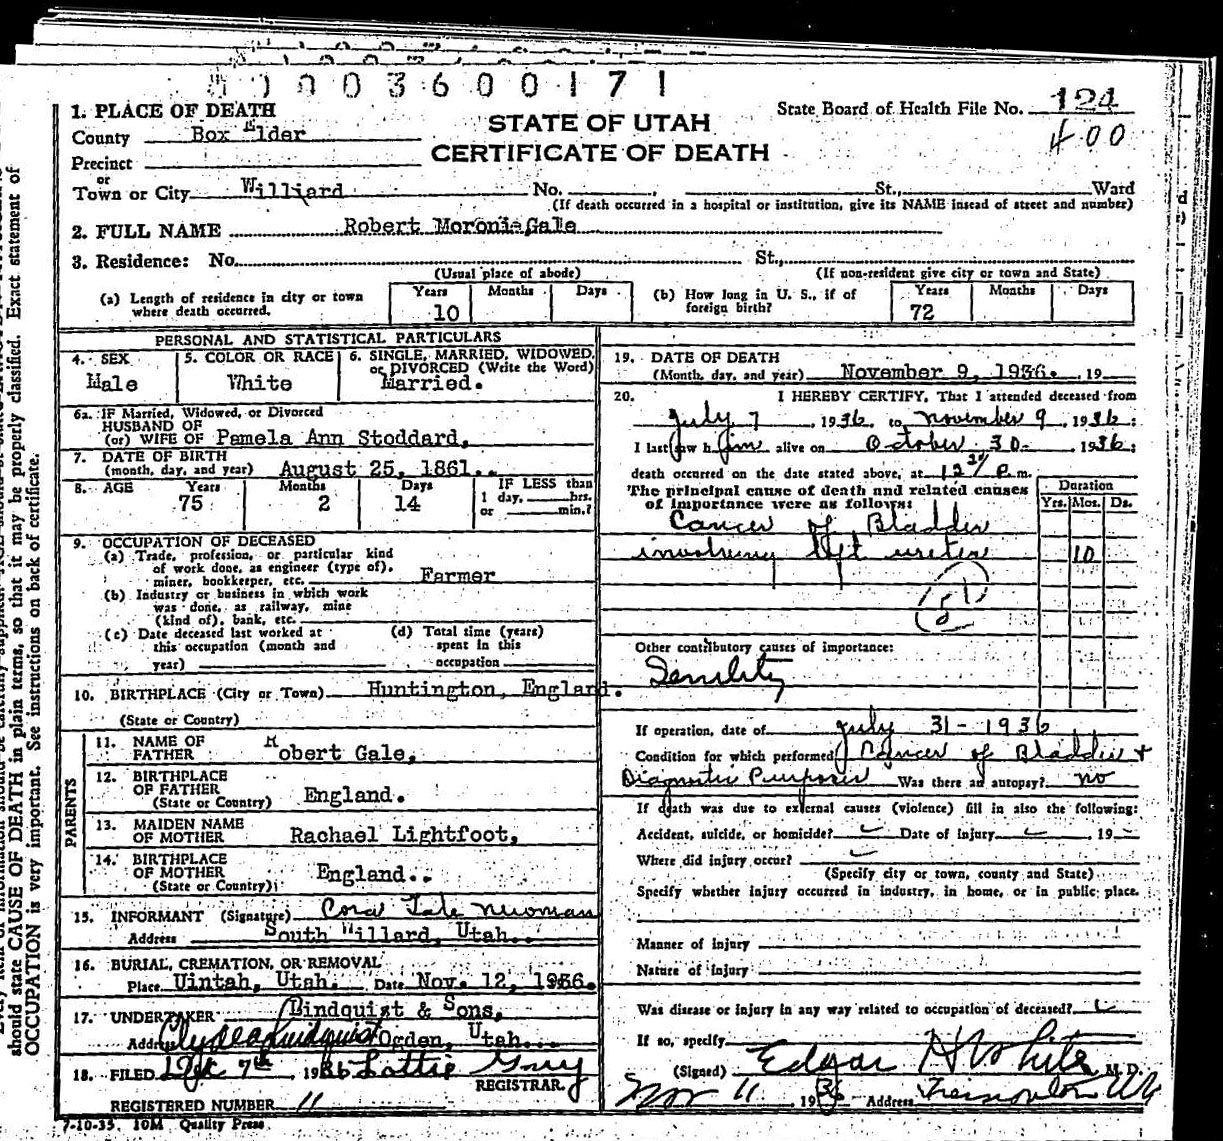 0 0 3 6 0 0 1 7 1
1. PLACE OF DEATH
County Box Elder
Precinct
or
Town or City Williard No. St., Ward
(If death occurred in a hospital or institution, give its NAME insead of street and number)
State Board of Health File No. 124
400
STATE OF UTAH
CERTIFICATE OF DEATH
2. FULL NAME Robert Moronie Gale
3. Residence: No. St.,
(Usual place of abode) (If non-resident give city or town and State)
(a) Length of residence in city or town where death occurred. Years 10 Months Days
(b) How long in U. S., if of foreign birth? Years 72 Months Days
PERSONAL AND STATISTICAL PARTICULARS
4. SEX Male
5. COLOR OR RACE White
6. SINGLE, MARRIED, WIDOWED, or DIVORCED (Write the Word) Married.
6a. IF Married, Widowed, or Divorced
HUSBAND OF
(or) WIFE OF Pamela Ann Stoddard,
7. DATE OF BIRTH
(month, day, and year) August 25, 1861.
8. AGE Years 75 Months 2 Days 14 IF LESS than 1 day, hrs. or min.?
9. OCCUPATION OF DECEASED
(a) Trade, profession, or particular kind
of work done, as engineer (type of),
miner, bookkeeper, etc. Farmer
(b) Industry or business in which work
was done, as railway, mine
(kind of), bank, etc.
(c) Date deceased last worked at
this occupation (month and
year)
(d) Total time (years)
spent in this
occupation
10. BIRTHPLACE (City or Town) Huntington, England.
(State or Country)
PARENTS
11. NAME OF
FATHER Robert Gale,
12. BIRTHPLACE
OF FATHER
(State or Country) England.
13. MAIDEN NAME
OF MOTHER Rachael Lightfoot,
14. BIRTHPLACE
OF MOTHER
(State or Country) England..
15. INFORMANT (Signature) Cora Gale Newman
Address South Willard, Utah..
16. BURIAL, CREMATION, OR REMOVAL
Place Uintah, Utah. Date Nov. 12, 1936.
17. UNDERTAKER Lindquist & Sons,
Address Clyde Lindquist Ogden, Utah..
18. FILED Dec 7th, 1936 Lottie Gray
REGISTRAR.
REGISTERED NUMBER 11
7-10-35. 10M Quality Press
19. DATE OF DEATH
(Month, day, and year) November 9, 1936. , 19
20. I HEREBY CERTIFY, That I attended deceased from
July 7, 1936, to November 9 1936;
I last saw him alive on October 30- 1936;
death occurred on the date stated above, at P m.
The principal cause of death and related causes
of importance were as follows:
Duration
Yrs. Mos. Ds.
Cancer of Bladder
involving left ureter 10
Other contributory causes of importance:
Senility
If operation, date of July 31-1936
Condition for which performed Cancer of Bladder +
Diagnostic Purposes Was there an autopsy? no
If death was due to external causes (violence) fill in also the following:
Accident, suicide, or homicide? Date of injury , 19
Where did injury occur?
(Specify city or town, county and State)
Specify whether injury occurred in industry, in home, or in public place.
Manner of injury
Nature of injury
Was disease or injury in any way related to occupation of deceased?
If so, specify
(Signed) Edgar H White M.D.
Nov 11 1936 Address Tremonton Ut
should state CAUSE OF DEATH in plain terms, so that it may be properly classified. Exact statement of
OCCUPATION is very important. See instructions on back of certificate.